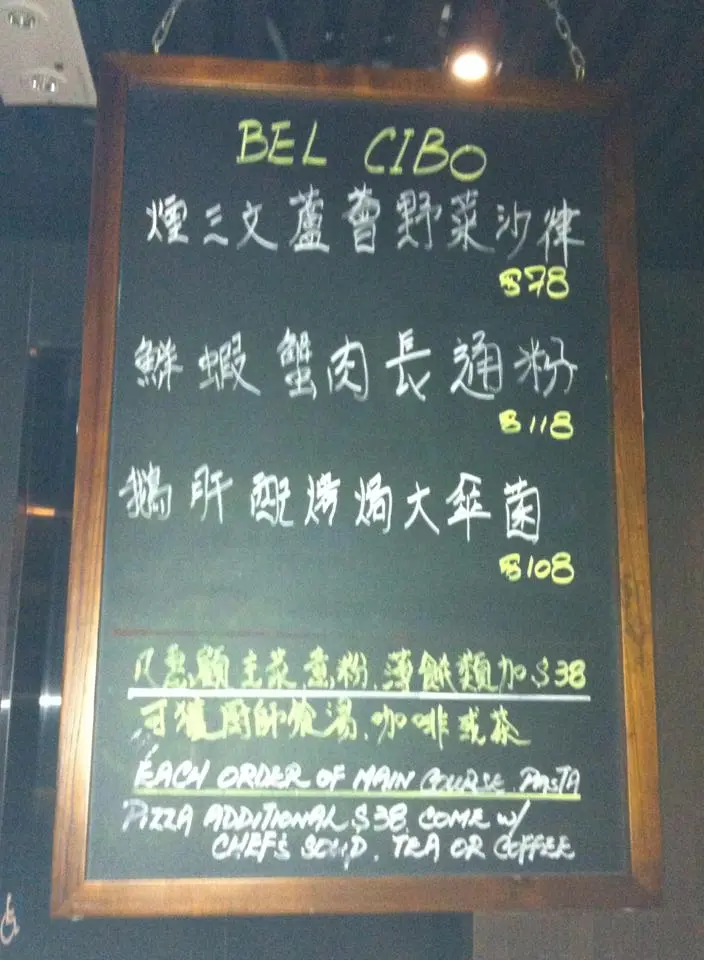 BEL CIBO
煙三文蘆薈野菜沙律
$78
鮮蝦蟹肉長通粉
$118
鵝肝配烤焗大傘菌
$108
凡惠顧主菜意粉.薄餅類加$38
可獲厨師餐湯.咖啡或茶
EACH ORDER OF MAIN COURSE. PASTA
PIZZA ADDITIONAL $38. COME W/
CHEF'S SOUP. TEA OR COFFEE